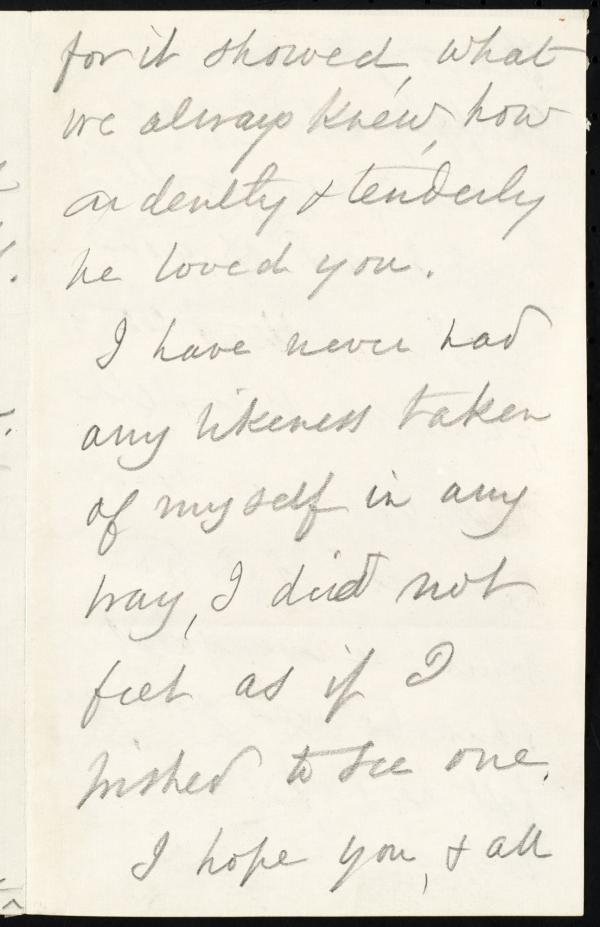 for it showed, what
we always knew, how
ardently & tenderly
he loved you.
I have never had
any likeness taken
of myself in any
way, I did not
feel as if I
wished to see one.
I hope you, & all